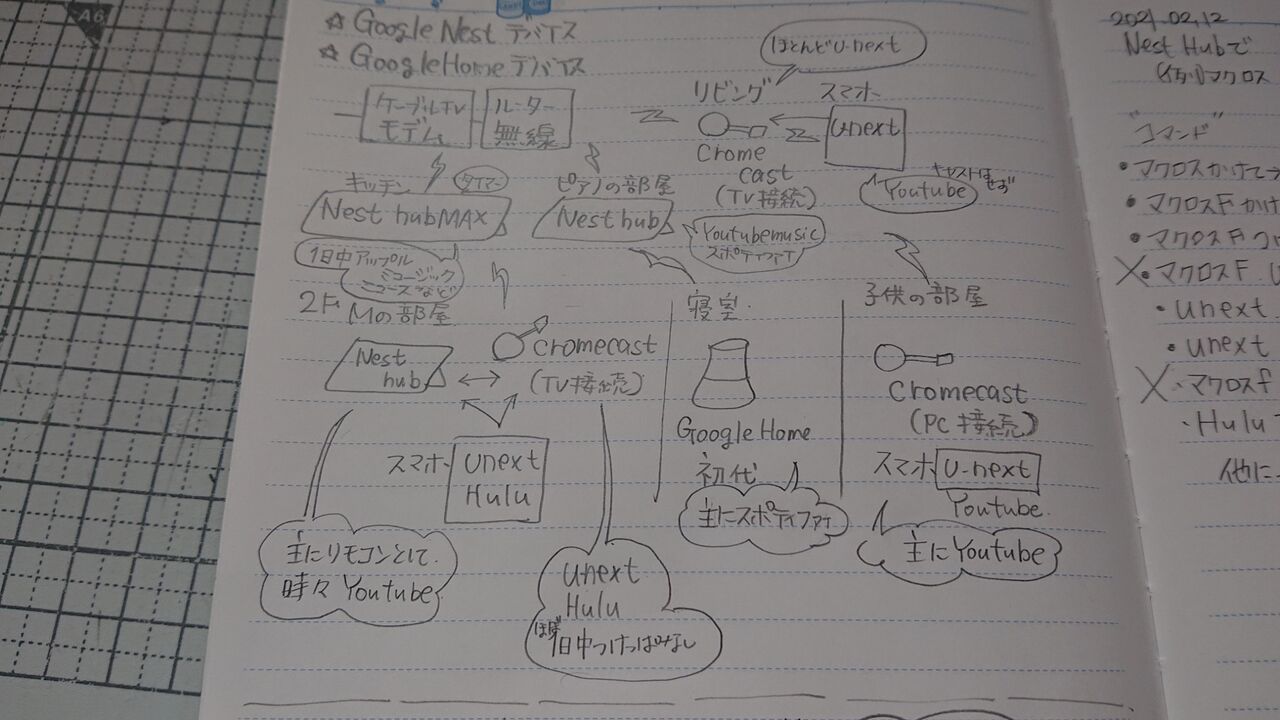 A6
☆ Google Nest デバイス
☆ GoogleHome デバイス
ほとんどU-next
ケーブルTV
モデム
ルーター
無線
リビング
Crome
cast
(TV接続)
スマホ
Unext
キャストはせず
Youtube
キッチン
タイマー
Nest hubMAX
1日中アップル
ミュージック
ニュースなど
ピアノの部屋
Nest hub
Youtubemusic
スポティファイ
2F Mの部屋
Nest
hub
cromecast
(TV接続)
スマホ
Unext
Hulu
主にリモコンとして.
時々 Youtube
Unext
Hulu
ほぼ
1日中つけっぱなし
寝室.
Google Home
初代
主にスポティファイ
子供の部屋
Cromecast
(PC接続)
スマホ
U-next
Youtube.
主にYoutube
2021.02.12
Nest Hubで
(例)マクロス
"コマンド"
・マクロスかけて→
・マクロスFかけ
・マクロスF
X・マクロスF
・Unext
・Unext
X・マクロスf
・Hulu
他に